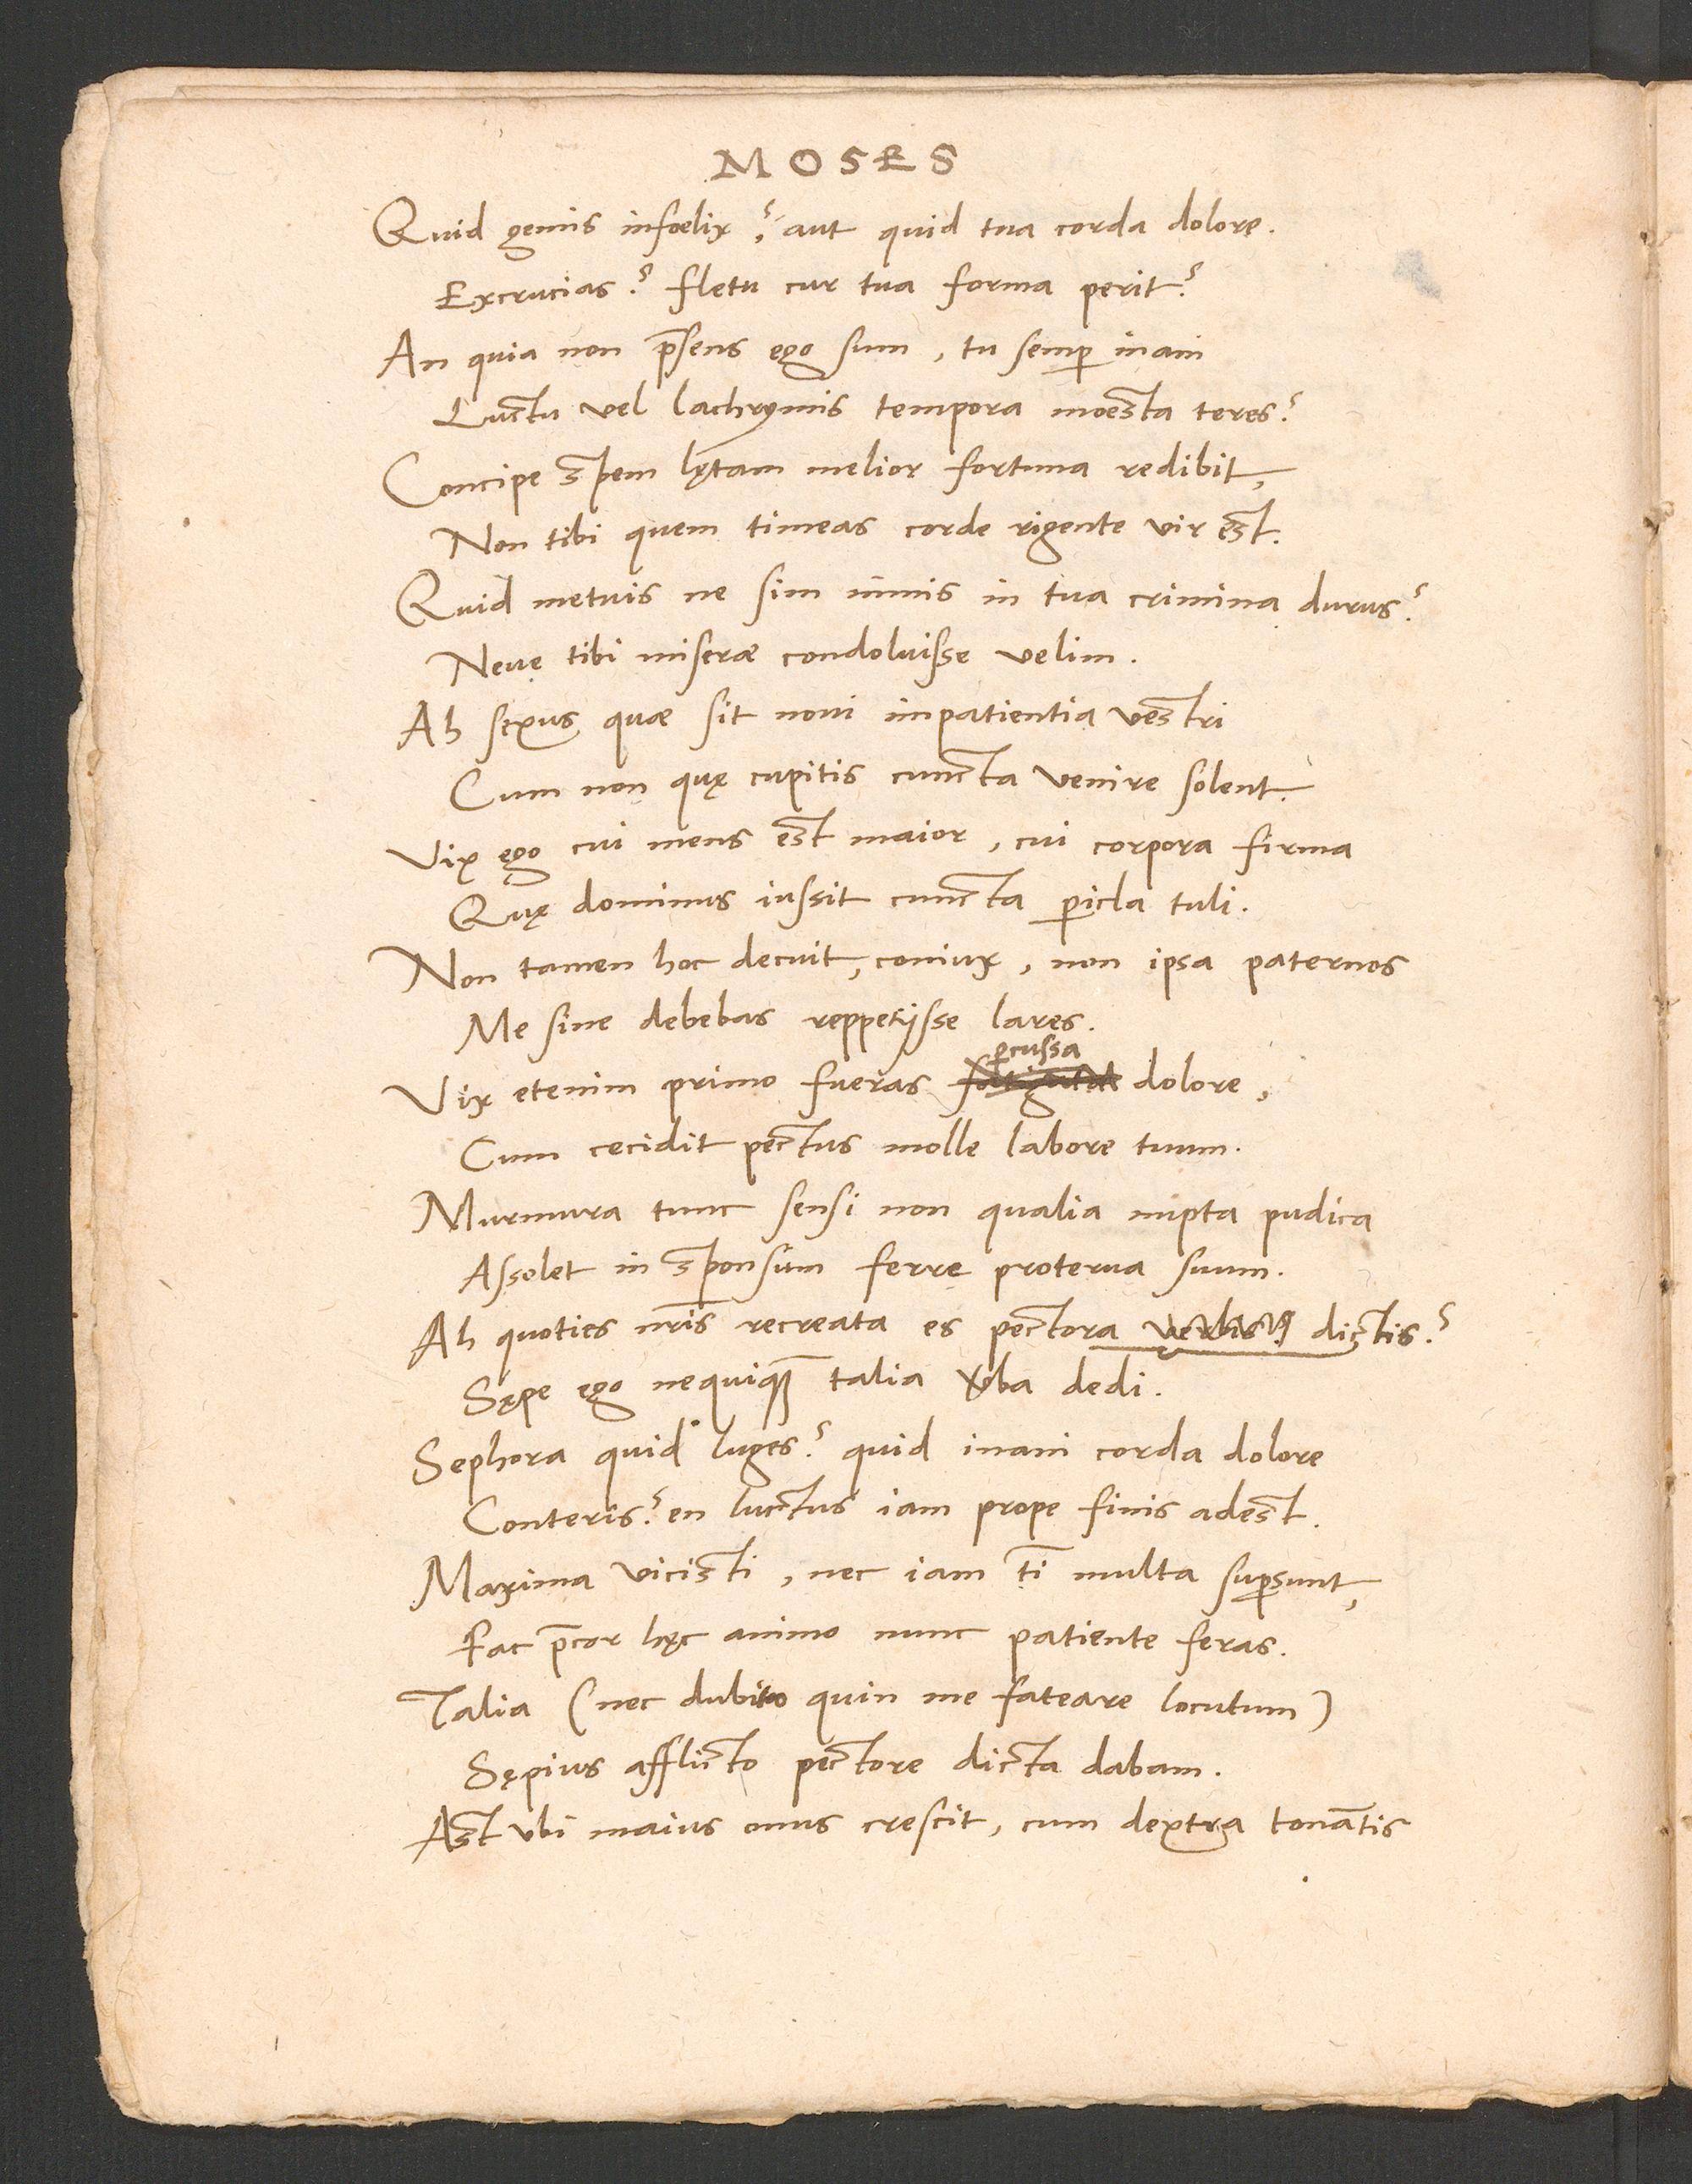 MOSES
Quid gemis infoelix? aut quid tua corda dolore.
Excrucias? fletu cur tua forma perit?
An quia non p̄sens ego sum, tu semꝑ inani
Luctu vel lachrymis tempora moesta teres?
Concipe spem lętam melior fortuna redibit,
Non tibi quem timeas corde rigente vir est.
Quid metuis ne sim nimis in tua crimina durus?
Neue tibi miserae condoluisse velim.
Ah sexus quae sit noui impatientia vestri
Cum non quę cupitis cuncta venire solent.
Vix ego cui mens est maior, cui corpora firma
Quę dominus iussit cuncta ꝑicla tuli.
Non tamen hoc decuit, coniux, non ipsa paternos
Me sine debebas reppetijsse lares.
ꝑcussa
Vix etenim primo fueras fatigata dolore,
Cum cecidit pectus molle labore tuum.
Murmura tunc sensi non qualia nupta pudica
Assolet in sponsum ferre proterua suum.
Ah quoties nr̄is recreata es pectora verbis dictis?
Sępe ego nequiquā talia v̄ba dedi.
Sephora quid luges? quid inani corda dolore
Conteris? en luctus iam prope finis adest.
Maxima vicisti, nec iam t̄i multa suꝑsunt,
Fac p̄cor hęc animo nunc patiente feras.
Talia (nec dubito quin me fateare locutum)
Sępius afflicto pectore dicta dabam.
Ast vbi maius onus crescit, cum dextra tonātis